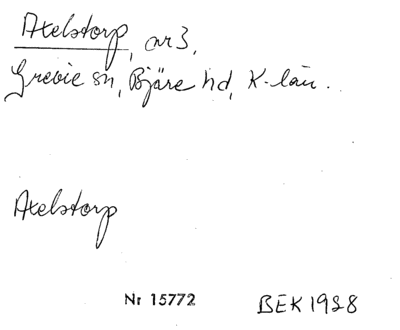 Axelstorp, nr 3,
Grevie sn, Bjäre hd, K-län.
Axelstorp
Nr 15772
BEK 1928